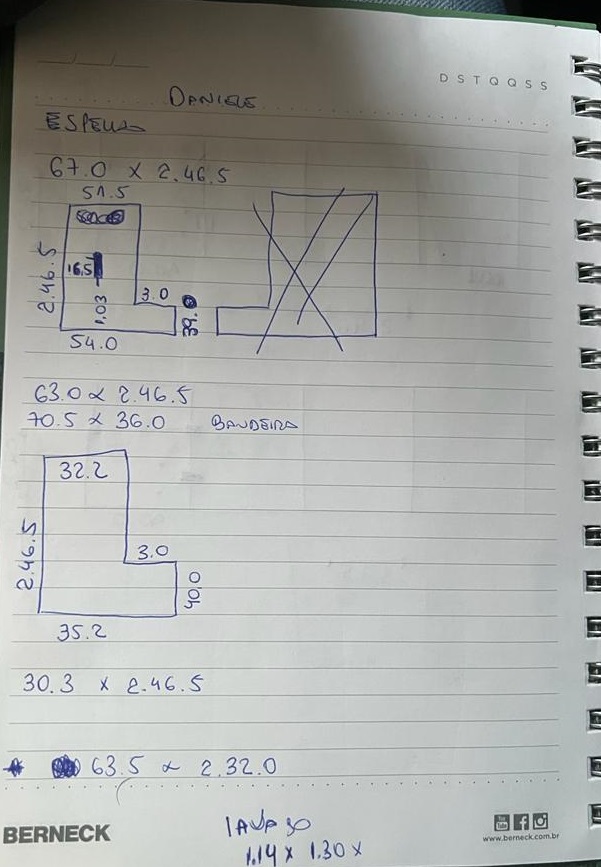 D S T Q Q S S
DANIELE
ESPELHO
67.0 x 2.46.5
51.5
2.46.5
16.5
1.03
3.0
39.0
54.0
63.0 x 2.46.5
70.5 x 36.0 BANDEIRA
32.2
2.46.5
3.0
40.0
35.2
30.3 x 2.46.5
* 63.5 x 2.32.0
BERNECK
1.14 x 1.30 x
You Tube
www.berneck.com.br